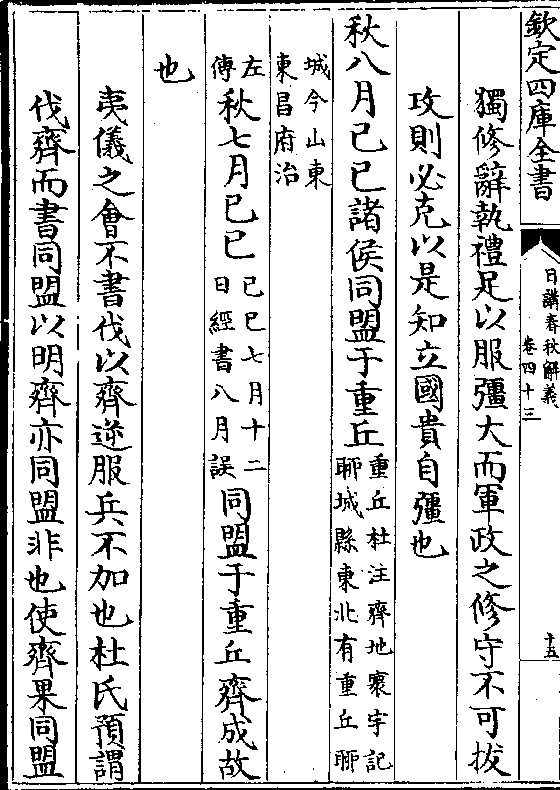 欽定四庫全書
日講春秋解義
卷四十三
十五
獨修辭執禮足以服彊大而軍政之修守不可拔
攻則必克以是知立國貴自彊也
秋八月己巳諸侯同盟于重丘
重丘杜注齊地寰宇記
聊城縣東北有重丘聊
城今山東
東昌府治
左
傳
秋七月己巳
己巳七月十二
日經書八月誤
同盟于重丘齊成故
也
夷儀之會不書伐以齊逆服兵不加也杜氏預謂
伐齊而書同盟以明齊亦同盟非也使齊果同盟